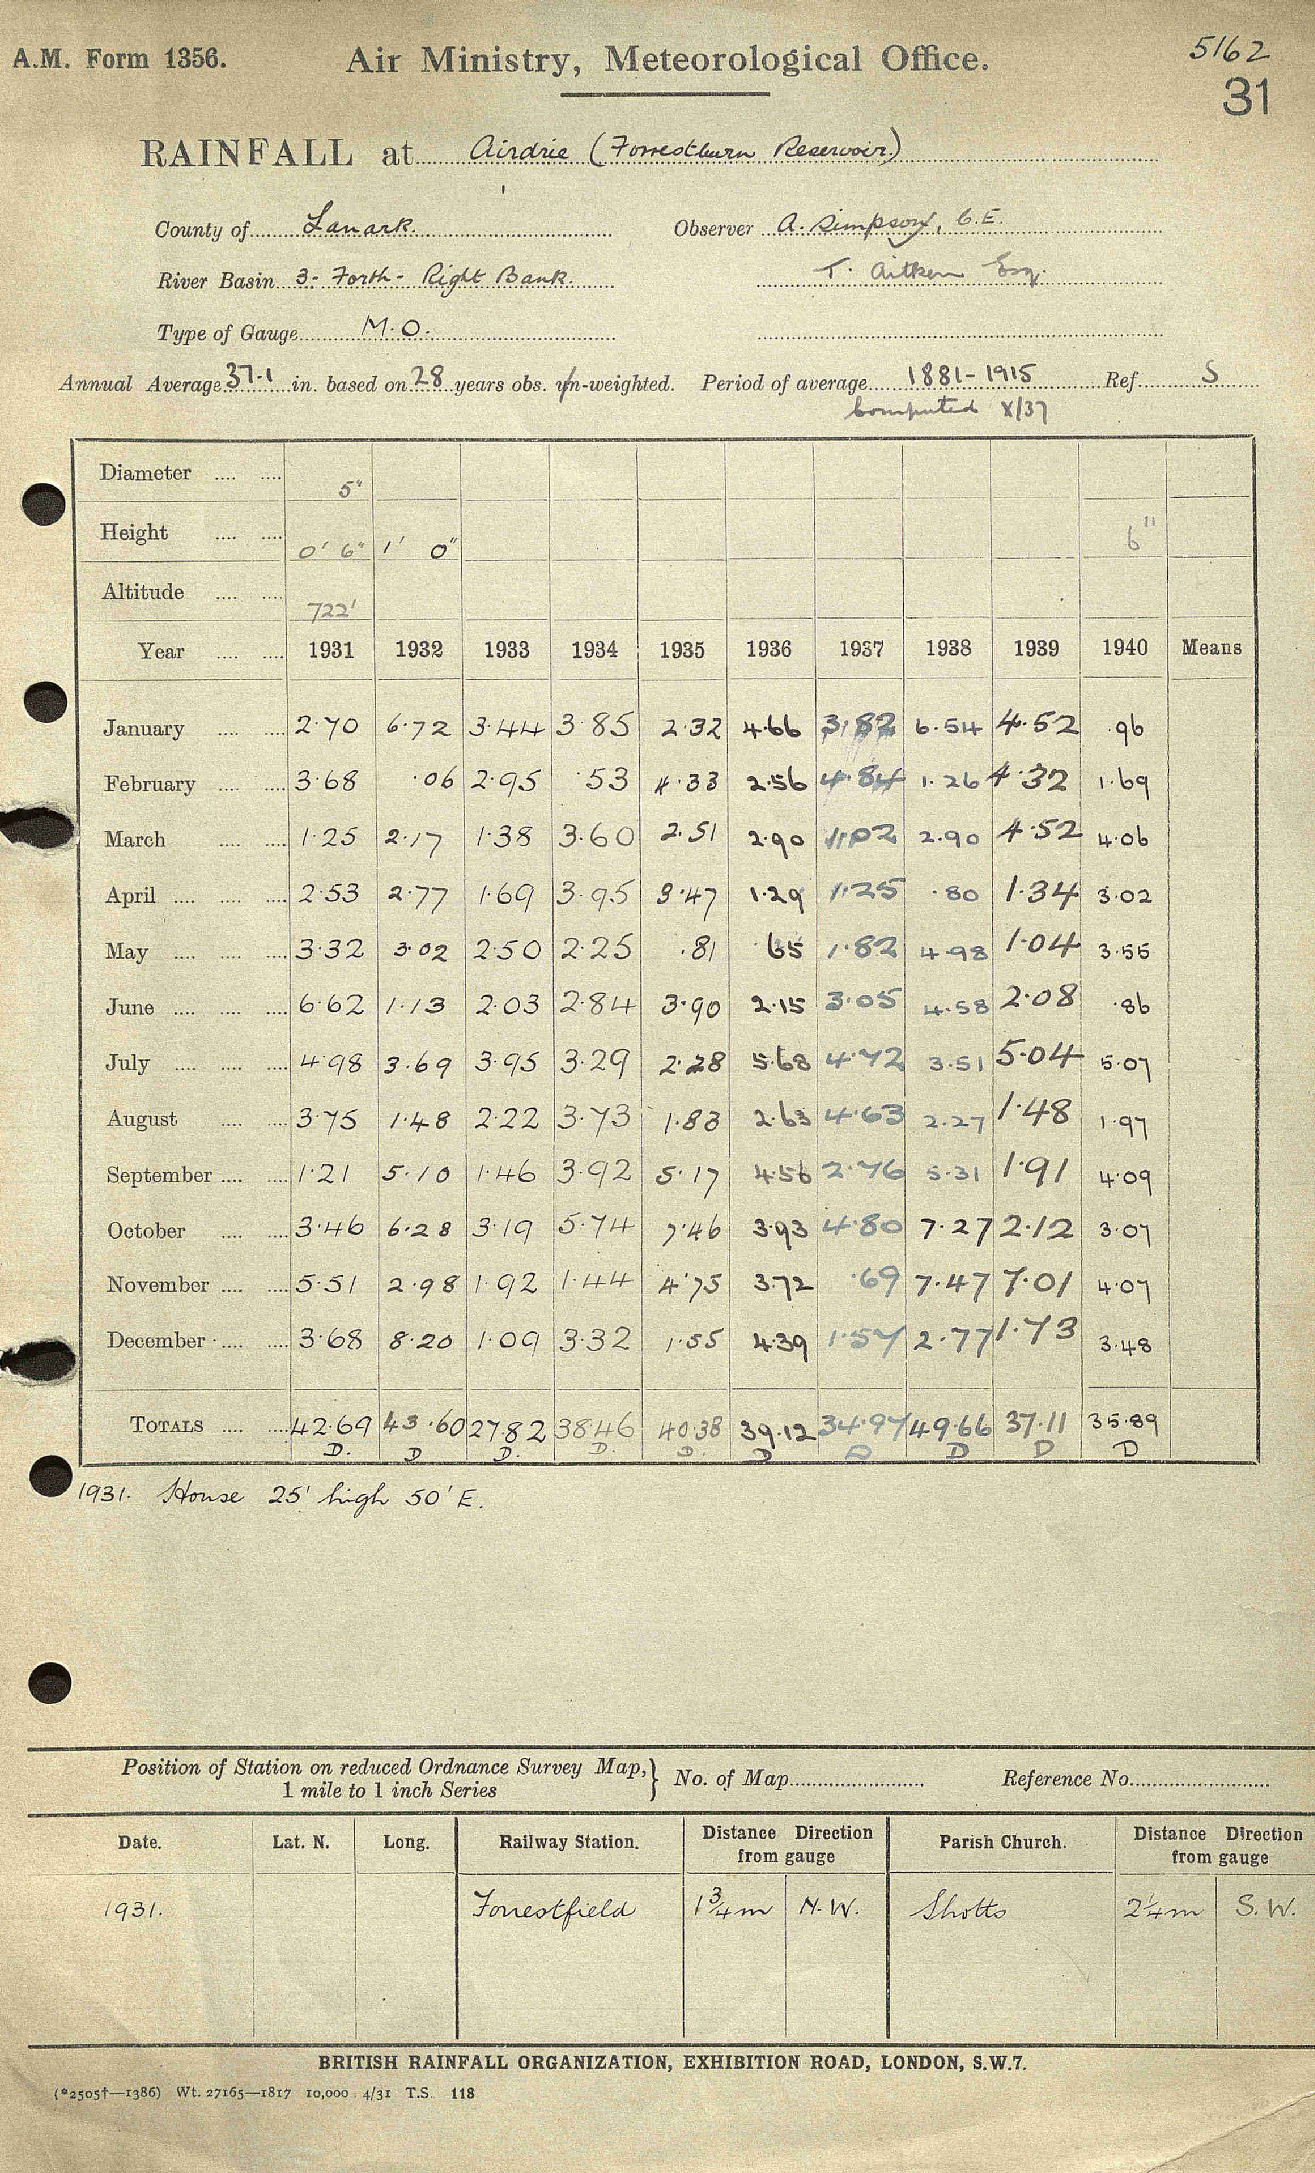 A.M. Form 1356. Air Ministry, Meteorological Office. 5162
31
RAINFALL at Airdrie (Forrestburn Reservoir)
County of Lanark. Observer A. Simpson, C.E.
River Basin 3- Forth - Right Bank. T. Aitken Esq.
Type of Gauge M.O.
Annual Average 37.1 in. based on 28 years obs. un-weighted. Period of average 1881-1915 Ref. S
Computed X/37
Diameter 5"
Height 0' 6" 1' 0" 6"
Altitude 722'
Year 1931 1932 1933 1934 1935 1936 1937 1938 1939 1940 Means
January 2.70 6.72 3.44 3.85 2.32 4.66 3.82 6.54 4.52 .96
February 3.68 .06 2.95 .53 4.33 2.56 4.84 1.26 4.32 1.69
March 1.25 2.17 1.38 3.60 2.51 2.90 1.02 2.90 4.52 4.06
April 2.53 2.77 1.69 3.95 3.47 1.29 1.25 .80 1.34 3.02
May 3.32 3.02 2.50 2.25 .81 .65 1.82 4.98 1.04 3.55
June 6.62 1.13 2.03 2.84 3.90 2.15 3.05 4.58 2.08 .86
July 4.98 3.69 3.95 3.29 2.28 5.68 4.72 3.51 5.04 5.07
August 3.75 1.48 2.22 3.73 1.83 2.63 4.63 2.27 1.48 1.97
September 1.21 5.10 1.46 3.92 5.17 4.56 2.76 5.31 1.91 4.09
October 3.46 6.28 3.19 5.74 7.46 3.93 4.80 7.27 2.12 3.07
November 5.51 2.98 1.92 1.44 4.75 3.72 .69 7.47 7.01 4.07
December 3.68 8.20 1.09 3.32 1.55 4.39 1.57 2.77 1.73 3.48
TOTALS 42.69 43.60 27.82 38.46 40.38 39.12 34.97 49.66 37.11 35.89
D. D D. D. D. D D D D D
1931. House 25' high 50' E.
Position of Station on reduced Ordnance Survey Map, 1 mile to 1 inch Series } No. of Map Reference No.
Date. Lat. N. Long. Railway Station. Distance Direction from gauge Parish Church. Distance Direction from gauge
1931. Forrestfield 1¾m N.W. Shotts 2¼m S.W.
BRITISH RAINFALL ORGANIZATION, EXHIBITION ROAD, LONDON, S.W.7.
(*2505†—1386) Wt. 27165—1817 10,000 4/31 T.S. 118